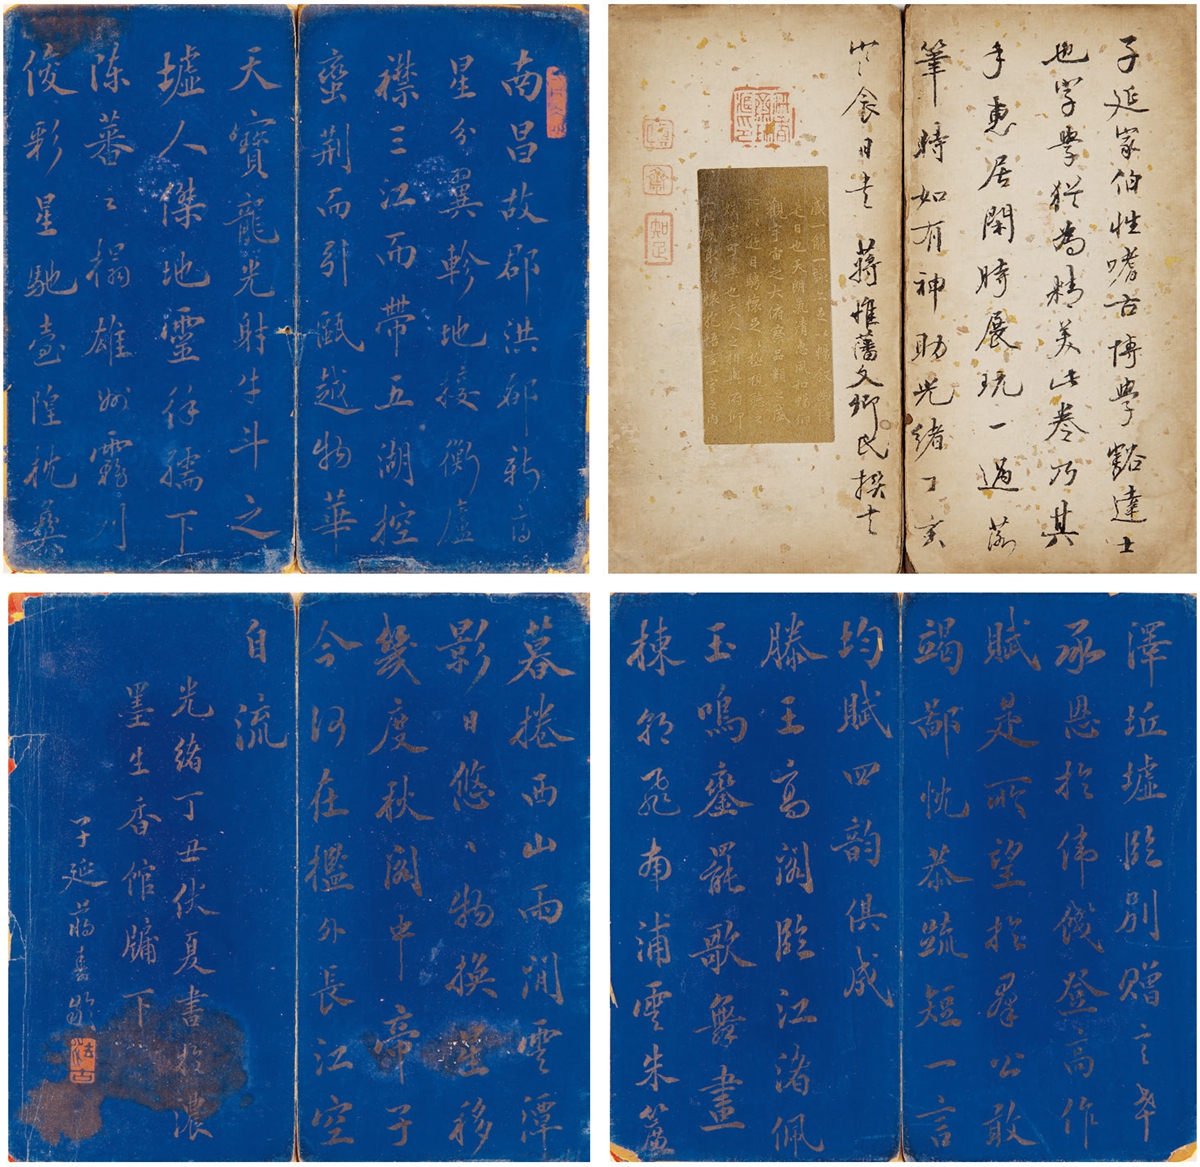 南昌故郡洪都新府
星分翼軫地接衡廬
襟三江而帶五湖控
蠻荊而引甌越物華
天寶龍光射牛斗之
墟人傑地靈徐孺下
陳蕃之榻雄州霧列
俊彩星馳臺隍枕夷
子延家伯性嗜古博學豁達士
也字學猶為精美此卷乃其
手惠居閑時展玩一過落
筆時如有神助光緒丁亥
小食日書 蔣惟藩文卿氏撰書
知足
暮捲西山雨閒雲潭
影日悠〻物換星移
幾度秋閣中帝子
今何在檻外長江空
自流
光緒丁丑伏夏書於濃
墨生香館牖下
子延蔣
澤丘墟臨別贈言幸
承恩於偉餞登高作
賦是所望於羣公敢
竭鄙忱恭疏短一言
均賦四韵俱成
滕王高閣臨江渚佩
玉鳴鑾罷歌舞畫
棟朝飛南浦雲朱簾